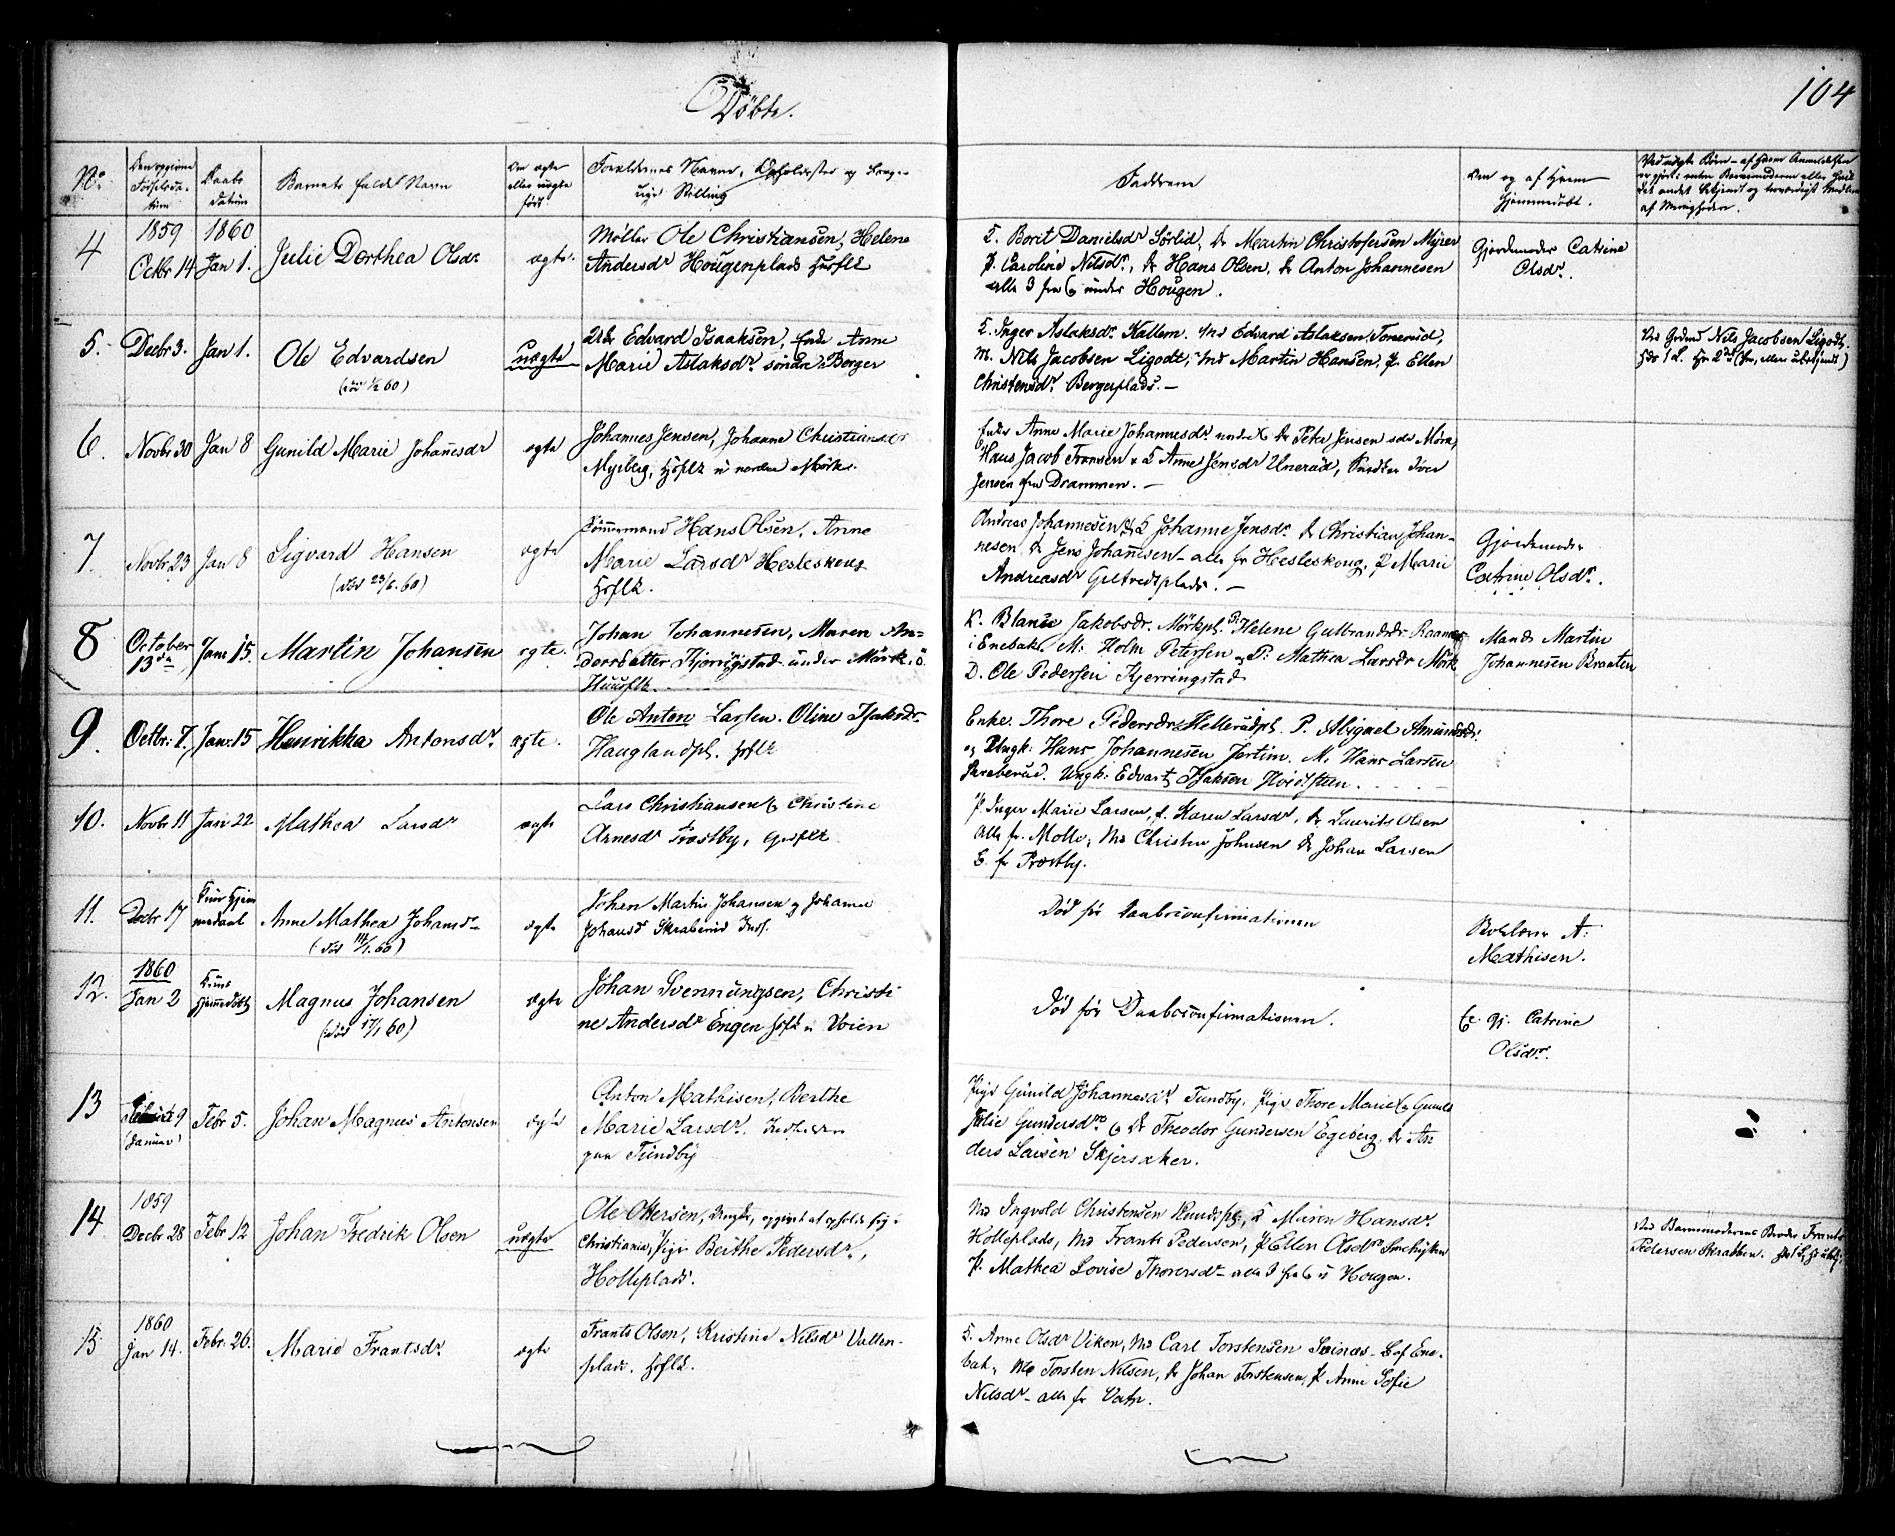 Døbte.
104
No.
Den opgivne
Fødselsda-
tum
Daabs
datum
Barnets fulde Navn
Om ægte
eller uægte
født.
Forældrenes Navne, Opholdssted og borger-
lige Stilling
Fadderne
Om og af hvem
hjemmedøbt.
Ved uægte Børn - af hvem Anmeldelsen
er gjort: enten Barnemoderen eller
det andet bekjendt og troværdigt Medlem
af Menigheden.
4
1859
Octbr 14
1860
Jan 1.
Julie Dorthea Olsdr
ægte.
Møller Ole Christiansen, Helene
Andersdr Hougenplads Husflk
E. Borit Danielsdr Sørlid, Martin Christofersen Myrer
P. Caroline Nilsdr., Hans Olsen, Anton Johannesen
alle 3 fra under Hougen.
Gjordemoder Catrine
Olsdr.
5.
Decbr 3.
Jan 1.
Ole Edvardsen
uægte
Edvard Isaaksen, Enke Anne
Marie Aslaksdr. søndre Berger
E. Inger Aslaksdr. Kallem. Md Edvard Aslaksen Tomerud,
M. Nils Jacobsen Ligodt, Md Martin Hansen, P. Ellen
Christensdr. Bergerplads. -
Ved Nils Jacobsen Ligodt.
6.
Novbr 30
Jan 8
Gunild Marie Johanesdr
ægte
Johannes Jensen, Johanne Christiansdr
Myrberg, Hsflk u nordre Mørk.
Enke Anne Marie Johannesdr. Peter Jensen Mørk,
Hans Jacob Fransen & Anne Jensdr Unerud, Iver
Jensen fra Drammen. -
7.
Novbr. 23
Jan 8
Sigvard Hansen
(død 23/6. 60)
ægte
Tømmermand Hans Olsen, Anne
Marie Larsdr Hesleskoug
Hsflk.
Andreas Johannesen, Johanne Jensdr. Christian Johan-
nesen, Jens Johannesen - alle fr Hesleskoug, Marie
Andreasdr Geltvedtplads. -
Gjordemoder
Catrine Olsdr.
8
October
13de
Janr 15.
Martin Johansen
ægte.
Johan Johannesen, Maren An-
dersdatter Kjerrigstad under Mørk,
Huusflk.
K. Jakobsdr. Mørkpl. Helene Gulbrandsdr
i Enebak, M: Holm Petersen og P: Mathea Larsdr Mörk
D. Ole Pedersen Kjerringstad
Mands Martin
Johannesen Braaten
9.
Octbr: 7.
Janr: 15
Henrikka Antonsdr.
ægte.
Ole Anton Larsen. Oline Isaksdr
Hauglandpl. Hsflk
Enke. Thore Pedersdr Hellerudpl. P. Abigael Amundsdr.
og Ungk: Hans Johannesen Jertim. M. Hans Larsen
Skraberud. Ungk: Edvart Isaksen Hvidsteen.
10.
Novbr 11
Jan 22
Mathea Larsdr
ægte
Lars Christiansen & Christine
Arnesd Trostby, Hsflk
P. Inger Marie Larsen, Karen Larsdr, Laurits Olsen
alle fr. Molle, Md Christen Johnsen Johan Larsen
fr Præstby.
11.
Decbr 17
Kun hjem
medøbt
Anne Mathea Johansdr
(død 11/1.60)
ægte
Johan Martin Johansen og Johanne
Johansd Skraberud Indf.
Død før Daabsconfirmationen
A:
Mathisen.
12.
1860
Jan 2
Kuns
hjemmedøbt
Magnus Johansen
(død 17/1 60)
ægte
Johan Svennungsen, Christi
ne Andersdr Engen Hsflk u Voien
Død før Daabsconfirmationen.
Gj. Catrine
Olsdr.
13
9
(Januar)
Febr 5.
Johan Magnus Antonsen
ægte
Anton Mathisen, Berthe
Marie Larsdr.
paa Tundby
Pige Gunild Johannesdr. Tundby. Pige Thore Marie
Julie Gundersdr Theodor Gundersen Egeberg, An
ders Larsen Skjersaker.
14
1859
Decbr 28
Febr 12
Johan Fredrik Olsen
uægte
Ole Ottersen, Ungk., opgivet at opholde sig i
Christiania, Pige Berthe Pedersdr.,
Holleplads.
Md Ingvald Christensen Maren Hansdr.
Holleplads, Md Frants Pedersen, P Ellen Olsdr
P. Mathea Lovise Thorersdr - alle 3 fra u Hougen.
Ved Barnemoderens Broder Frants
Pedersen Skrabben.
15
1860
Jan 14.
Febr. 26.
Marie Frantsdr.
ægte
Frants Olsen, Kristine Nilsdr Vatten-
plads. Hsflk.
E. Anne Olsdr Viken, Md Carl Torstensen af Ene-
bak, Md Torsten Nilsen, Johan Torstensen, P Anne Sofie
Nilsdr - alle fr Vatn.